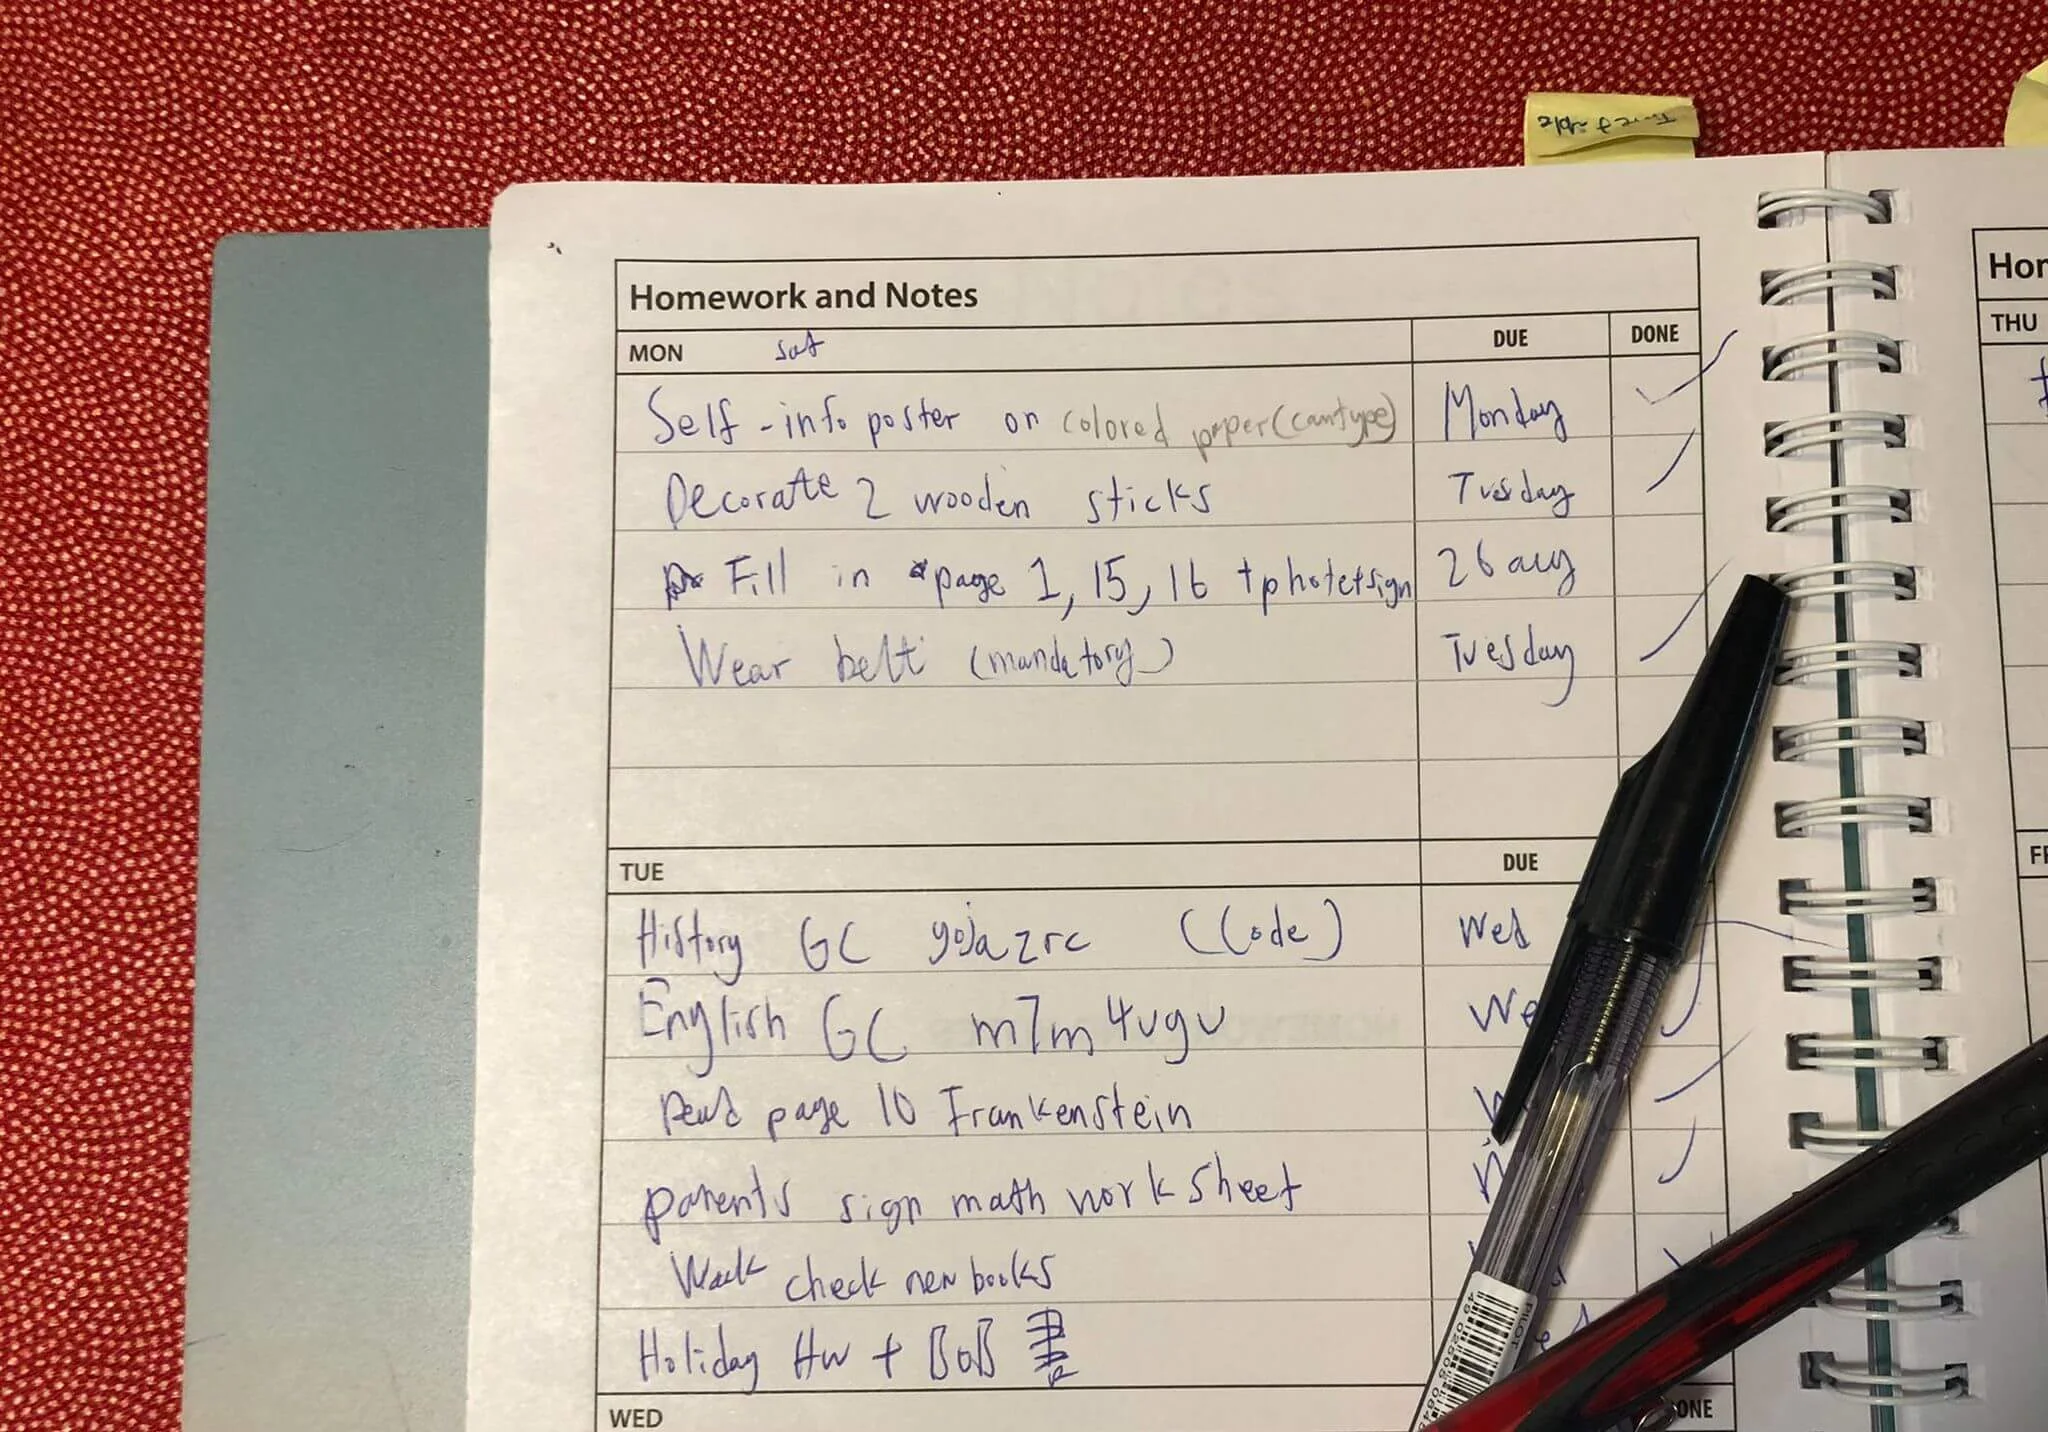 Timetable
Homework and Notes
MON sat DUE DONE
Self-info poster on colored paper (can type) Monday
Decorate 2 wooden sticks Tuesday
Fill in page 1, 15, 16 + photo + sign 26 aug
Wear belt (mandatory) Tuesday
TUE DUE
History GC yojazrc (Code) Wed
English GC m7m4vgv We
Read page 10 Frankenstein W
parents sign math worksheet
check new books
Holiday HW + BOB
WED ONE
Hor
THU
PILOT